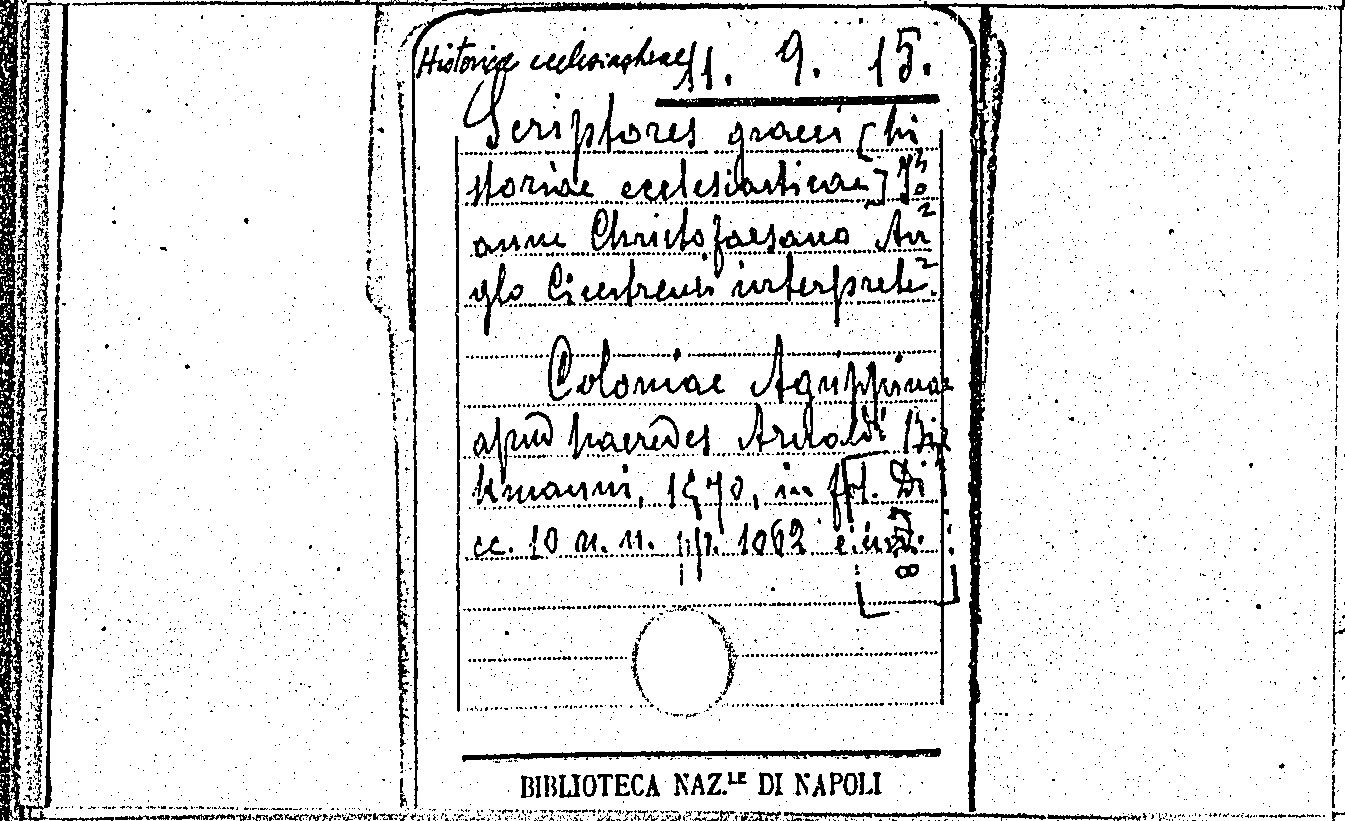 Historiae ecclesiasticae 11. 9. 15.
Scriptores graeci [hi
storiae ecclesiasticae] Jo
anne Christoforsano An
glo Cicestrensi interprete.
Coloniae Agrippinae
apud haeredes Arnoldi Bir
kmanni, 1570, in fol. Di
cc. 10 n. n. pp. 1062
BIBLIOTECA NAZ.LE DI NAPOLI